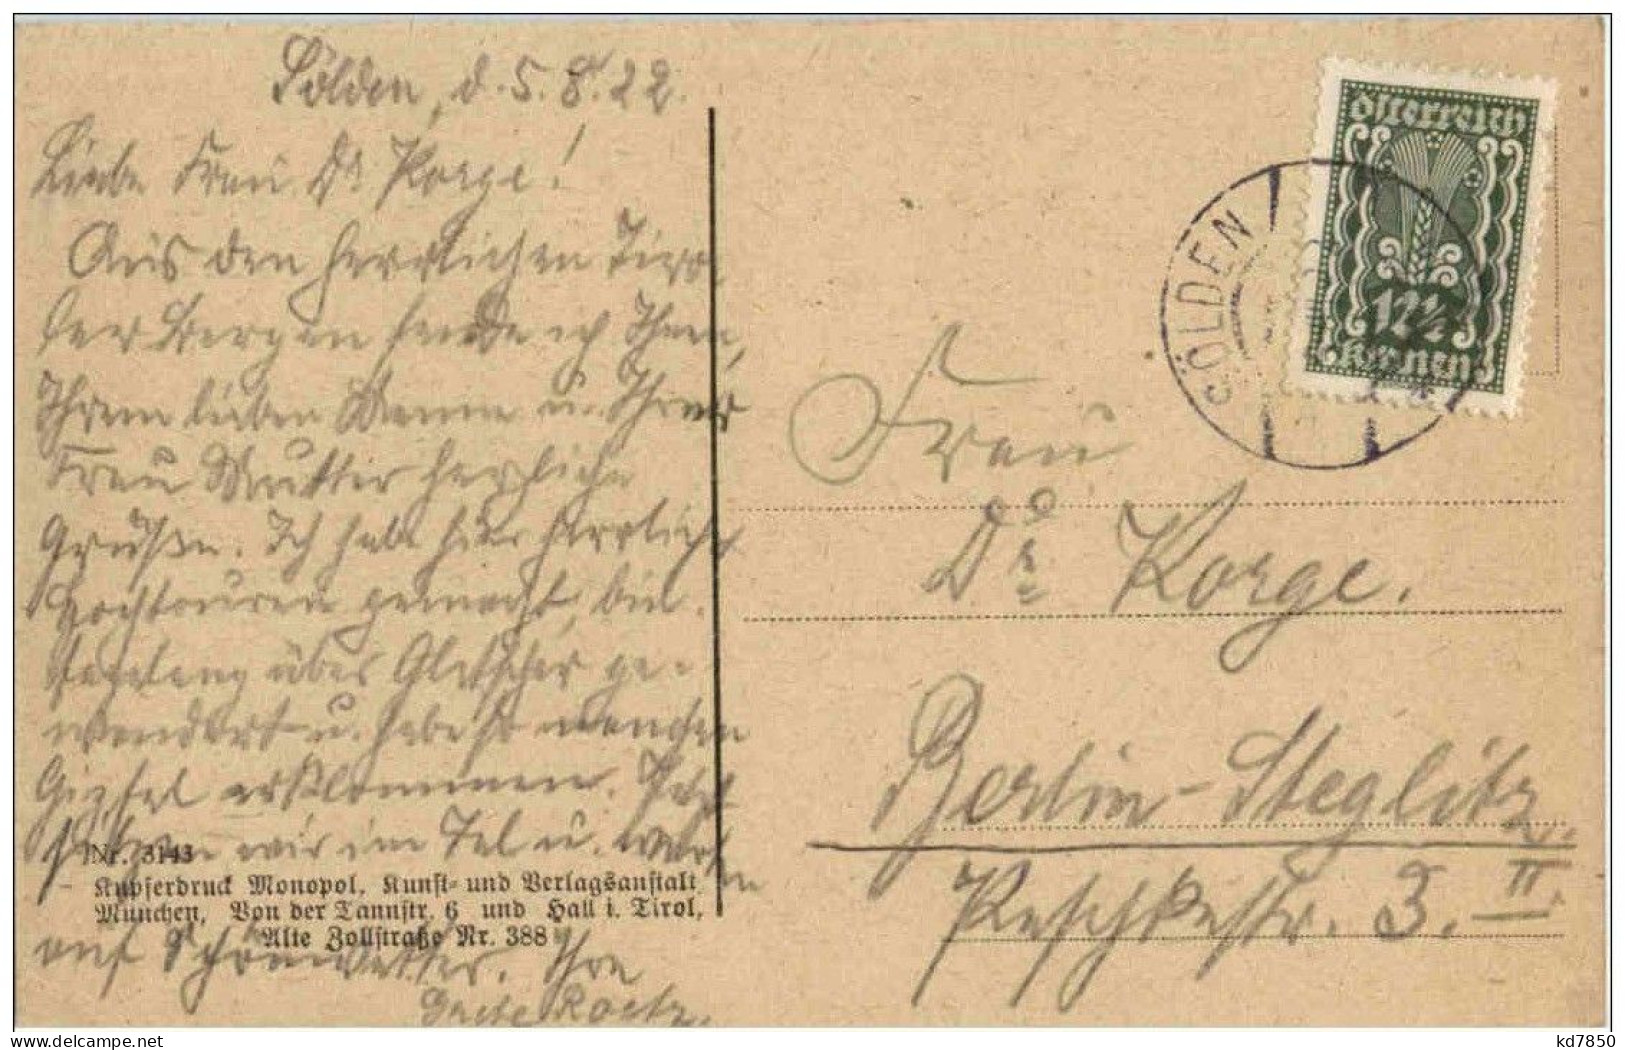 Sölden, d. 5.8.22.
Liebe Frau Dr. Korge!
Aus den herrlichen Tiro-
ler Bergen sende ich Ihnen,
Ihrem lieben Manne u. Ihrer
Frau Mutter herzliche
Grüße. Ich habe hier herrliche
Hochtouren gemacht, bin
tagelang über Gletscher ge-
wandert u. habe so manchen
Gipfel erklommen. Jetzt
sitzen wir im Tal u. warten
auf Schönwetter. Ihre
Grete
Nr. 3143
Kupferdruck Monopol, Kunst- und Verlagsanstalt
München, Von der Tannstr. 6 und Hall i. Tirol,
Alte Zollstraße Nr. 388
Österreich
12½
Kronen
SÖLDEN
Frau
Dr. Korge.
Berlin-Steglitz
Peschkestr. 3. II.
kd7850
delcampe.net